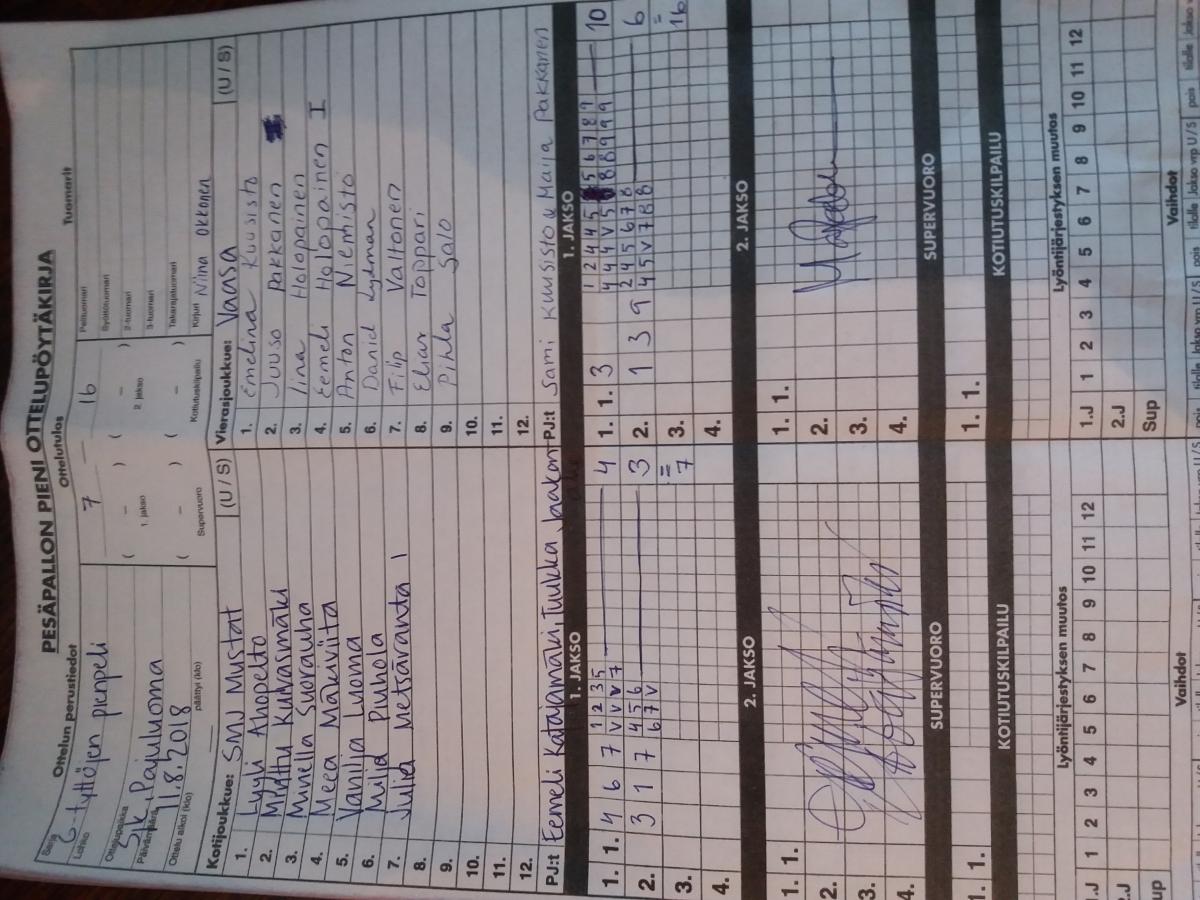 PESÄPALLON PIENI OTTELUPÖYTÄKIRJA
Ottelun perustiedot
Ottelutulos
Tuomarit
Sarja
G-tyttöjen pienpeli
Lohko
Ottelupaikka
Sjk, Pajuluoma
Päivämäärä
11.8.2018
Ottelu alkoi (klo)
päättyi (klo)
7 – 16
( – ) ( – )
1. jakso 2. jakso
( – ) ( – )
Supervuoro Kotiutuskilpailu
Pelituomari
Syöttötuomari
2-tuomari
3-tuomari
Takarajatuomari
Kirjuri Niina Okkonen
Kotijoukkue: SMJ Mustat (U / S)
1. Lyyli Ahopelto
2. Minttu Kuivasmäki
3. Minella Suorauha
4. Meea Mäkiviita
5. Vanilja Luoma
6. Milja Piuhola
7. Julia Metsäranta I
8.
9.
10.
11.
12.
PJ:t Eemeli Katajamäki, Tuukka
Vierasjoukkue: Vaasa (U / S)
1. Emelina Kuusisto
2. Juuso Pakkanen
3. Iina Holopainen
4. Eemeli Holopainen I
5. Anton Niemistö
6. Daniel Lydman
7. Filip Valtonen
8. Elias Toppari
9. Pihla Salo
10.
11.
12.
PJ:t Sami Kuusisto & Maija Pakkanen
1. JAKSO
1. 1. 4 6 7 1 2 3 5 4
V V V 7
2. 3 1 7 4 5 6 3
6 7 V =
3. 7
4.
2. JAKSO
1. 1.
2.
3.
4.
SUPERVUORO
1. 1.
KOTIUTUSKILPAILU
Lyöntijärjestyksen muutos
1.J 1 2 3 4 5 6 7 8 9 10 11 12
2.J
Sup
Vaihdot
1. JAKSO
1. 1. 3 1 2 4 4 5 5 6 7 8 9 10
4 4 V 5 8 8 9 9 9
2. 1 3 9 2 4 5 6 7 8 6
4 5 V 7 8 8 =
3. 16
4.
2. JAKSO
1. 1.
2.
3.
4.
SUPERVUORO
1. 1.
KOTIUTUSKILPAILU
Lyöntijärjestyksen muutos
1.J 1 2 3 4 5 6 7 8 9 10 11 12
2.J
Sup
Vaihdot